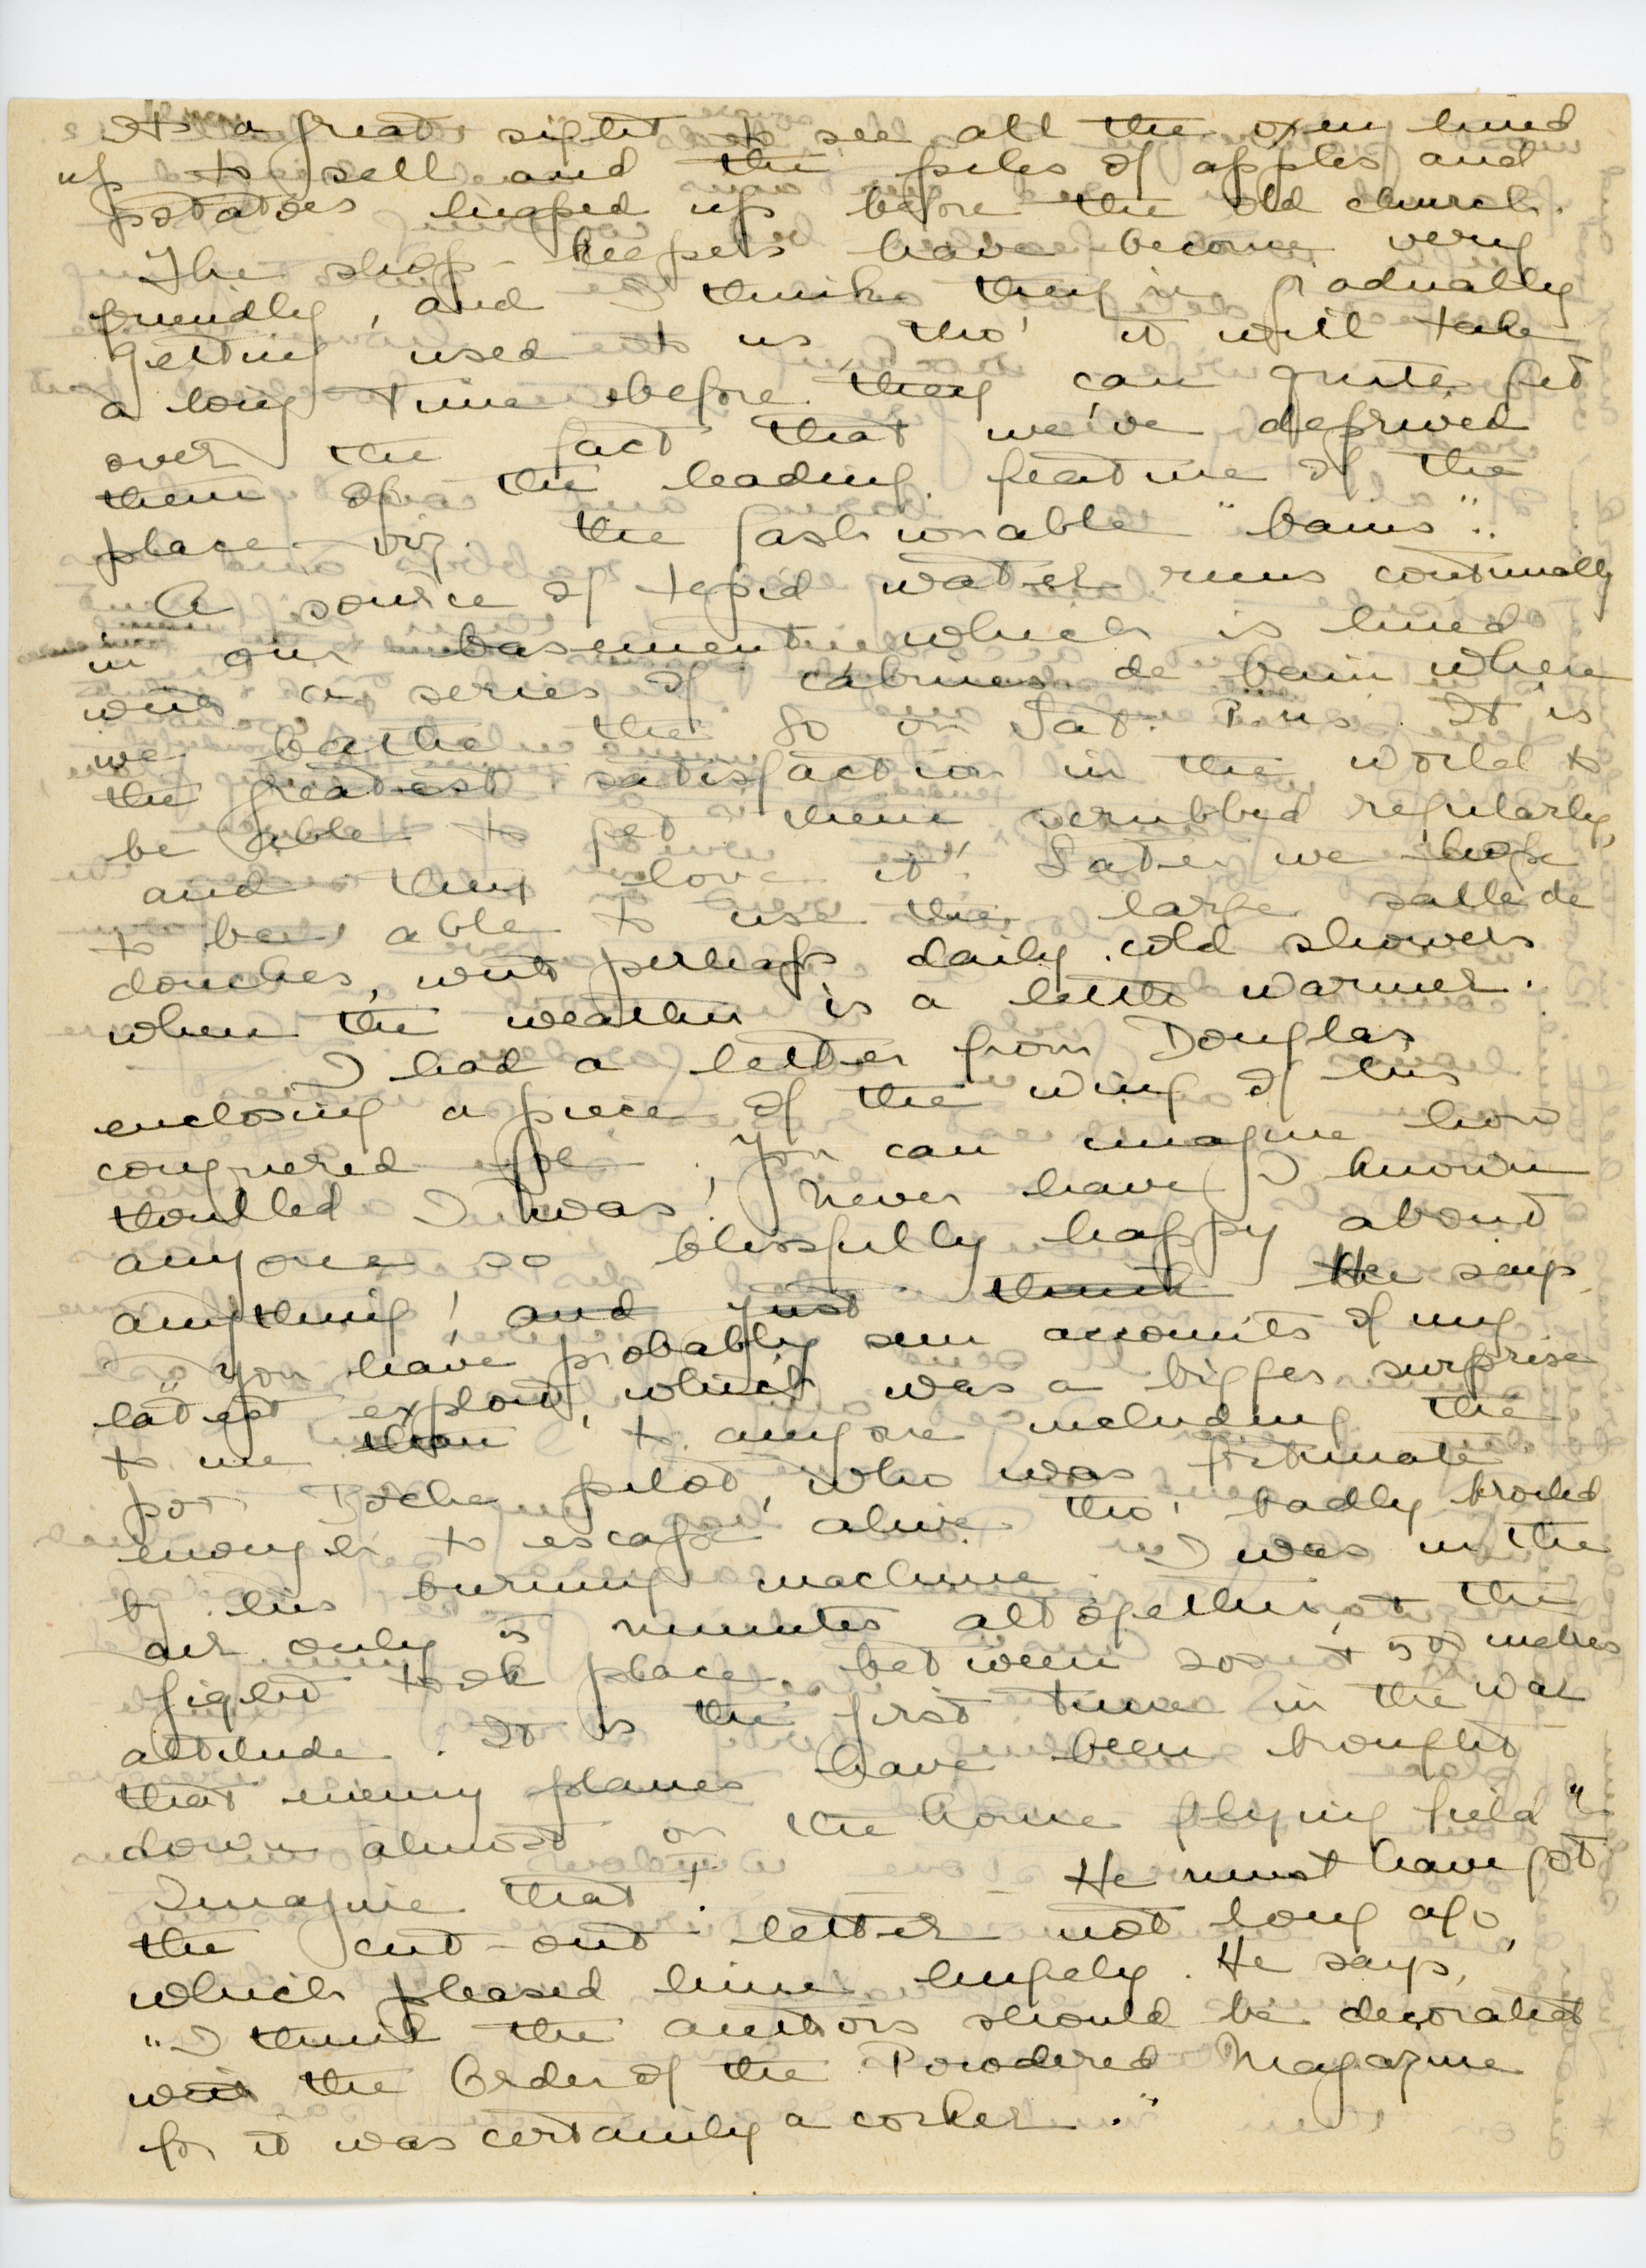 It's a great sight to see all the oxen lined
up to sell and the piles of apples and
potatoes heaped up before the old church.
The shop-keepers have become very
friendly, and I think they're gradually
getting used to us tho' it will take
a long time before they can quite get
over the fact that we've deprived
them of the leading feature of the
place viz. the fashionable "bains".
A source of tepid water runs continually
in our basement which is lined
with a series of cabines de bain where
we bathe the 80 on Sat. P.M.s. It is
the greatest satisfaction in the world to
be able to get them scrubbed regularly,
and they love it! Later we hope
to be able to use the large salle de
douches, with perhaps daily cold showers
when the weather is a little warmer.
I had a letter from Douglas
enclosing a piece of the wing of his
conquered foe. You can imagine how
thrilled I was! Never have I known
anyone so blissfully happy about
anything! and just think He says
"You have probably seen accounts of my
latest exploit, which was a bigger surprise
to me than to anyone including the
poor Boche pilot, who was fortunate
enough to escape alive tho' badly broiled
by his burning machine. I was in the
air only 5 minutes altogether & the
fight took place between 200 & 500 metres
altitude. It is the first time in the war
that enemy planes have been brought
down almost on the home flying field".
Imagine that! He must have got
the cut-out letter not long ago,
which pleased him hugely. He says,
"I think the authors should be decorated
with the Order of the Powdered Magazine
for it was certainly a corker."